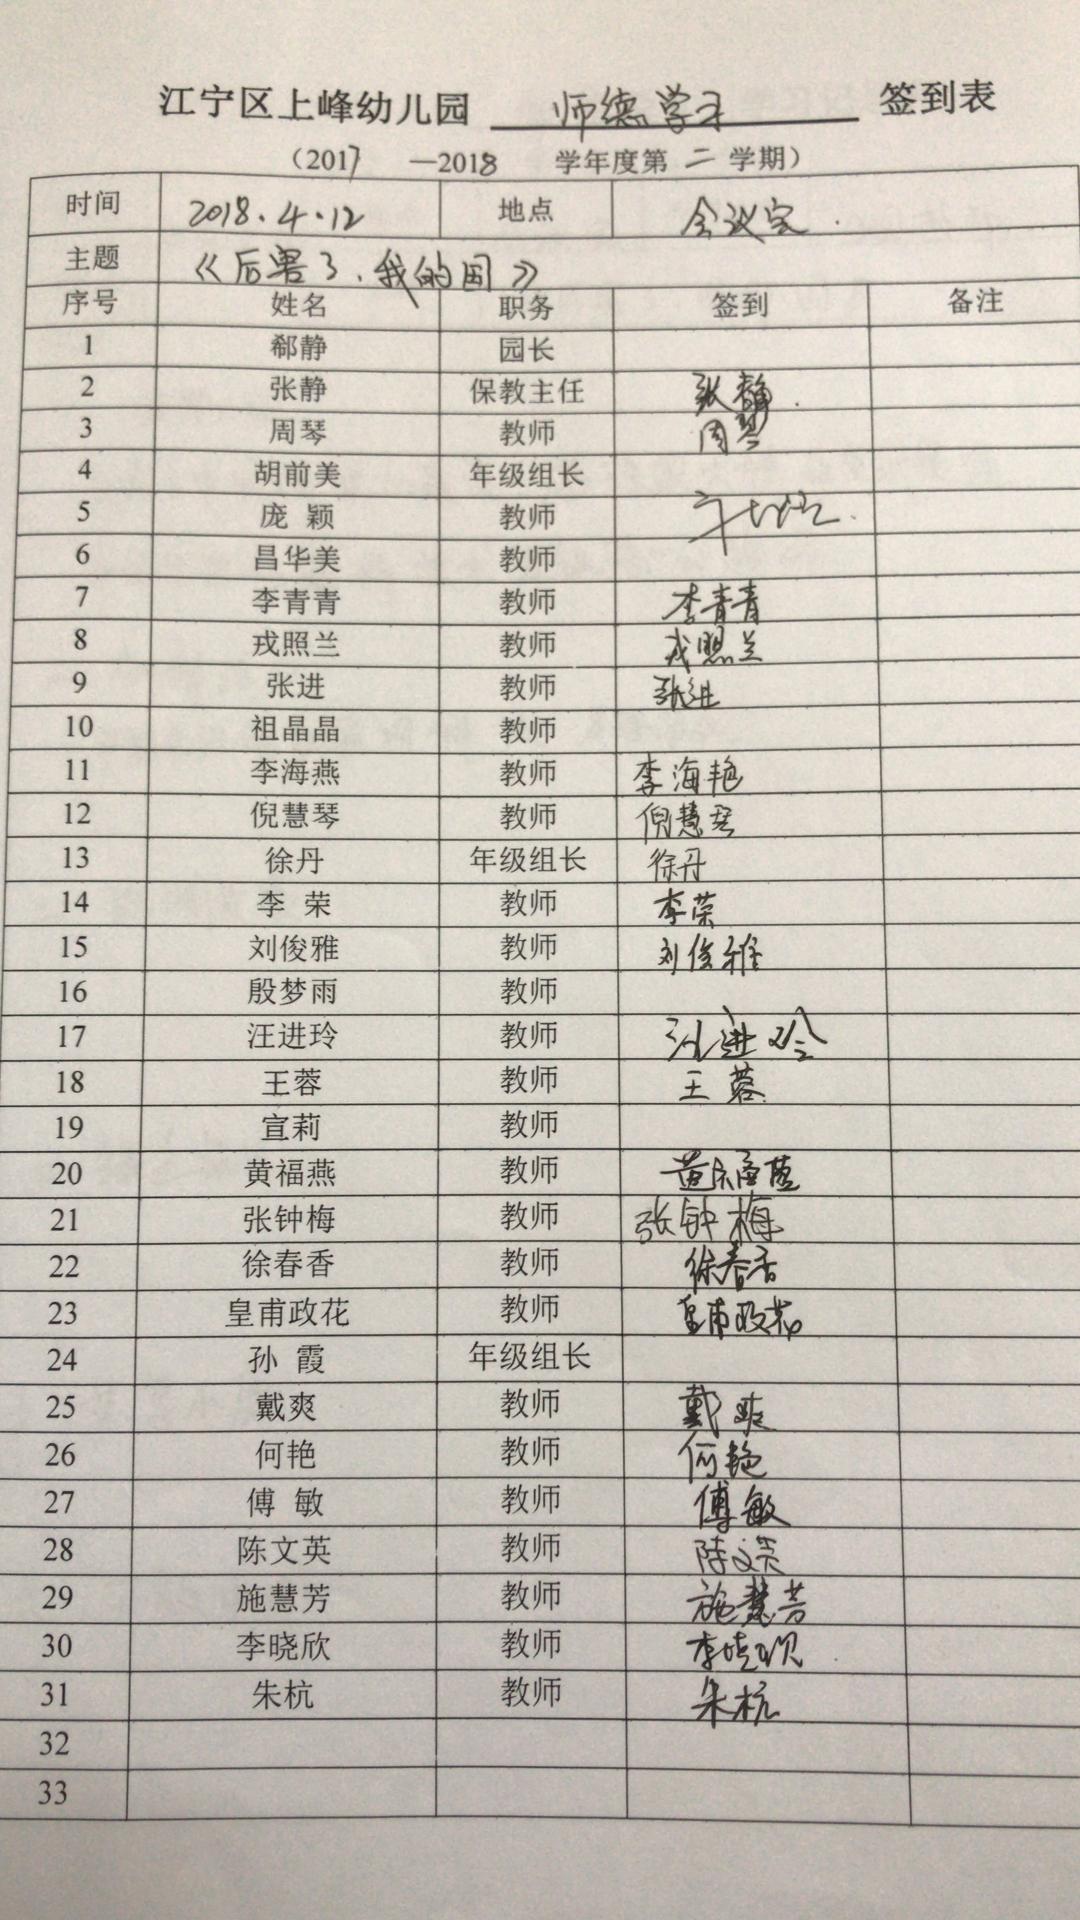 江宁区上峰幼儿园 师德学习 签到表
（2017 —2018 学年度第 二 学期）
时间 2018.4.12 地点 会议室
主题 《厉害了，我的国》
序号 姓名 职务 签到 备注
1 郗静 园长
2 张静 保教主任 张静
3 周琴 教师 周琴
4 胡前美 年级组长
5 庞 颖 教师
6 昌华美 教师
7 李青青 教师 李青青
8 戎照兰 教师 戎照兰
9 张进 教师 张进
10 祖晶晶 教师
11 李海燕 教师 李海艳
12 倪慧琴 教师 倪慧琴
13 徐丹 年级组长 徐丹
14 李 荣 教师 李荣
15 刘俊雅 教师 刘俊雅
16 殷梦雨 教师
17 汪进玲 教师 汪进玲
18 王蓉 教师 王蓉
19 宣莉 教师
20 黄福燕 教师 黄福燕
21 张钟梅 教师 张钟梅
22 徐春香 教师 徐春香
23 皇甫政花 教师 皇甫政花
24 孙 霞 年级组长
25 戴爽 教师 戴爽
26 何艳 教师 何艳
27 傅 敏 教师 傅敏
28 陈文英 教师 陈文英
29 施慧芳 教师 施慧芳
30 李晓欣 教师 李晓欣
31 朱杭 教师 朱杭
32
33